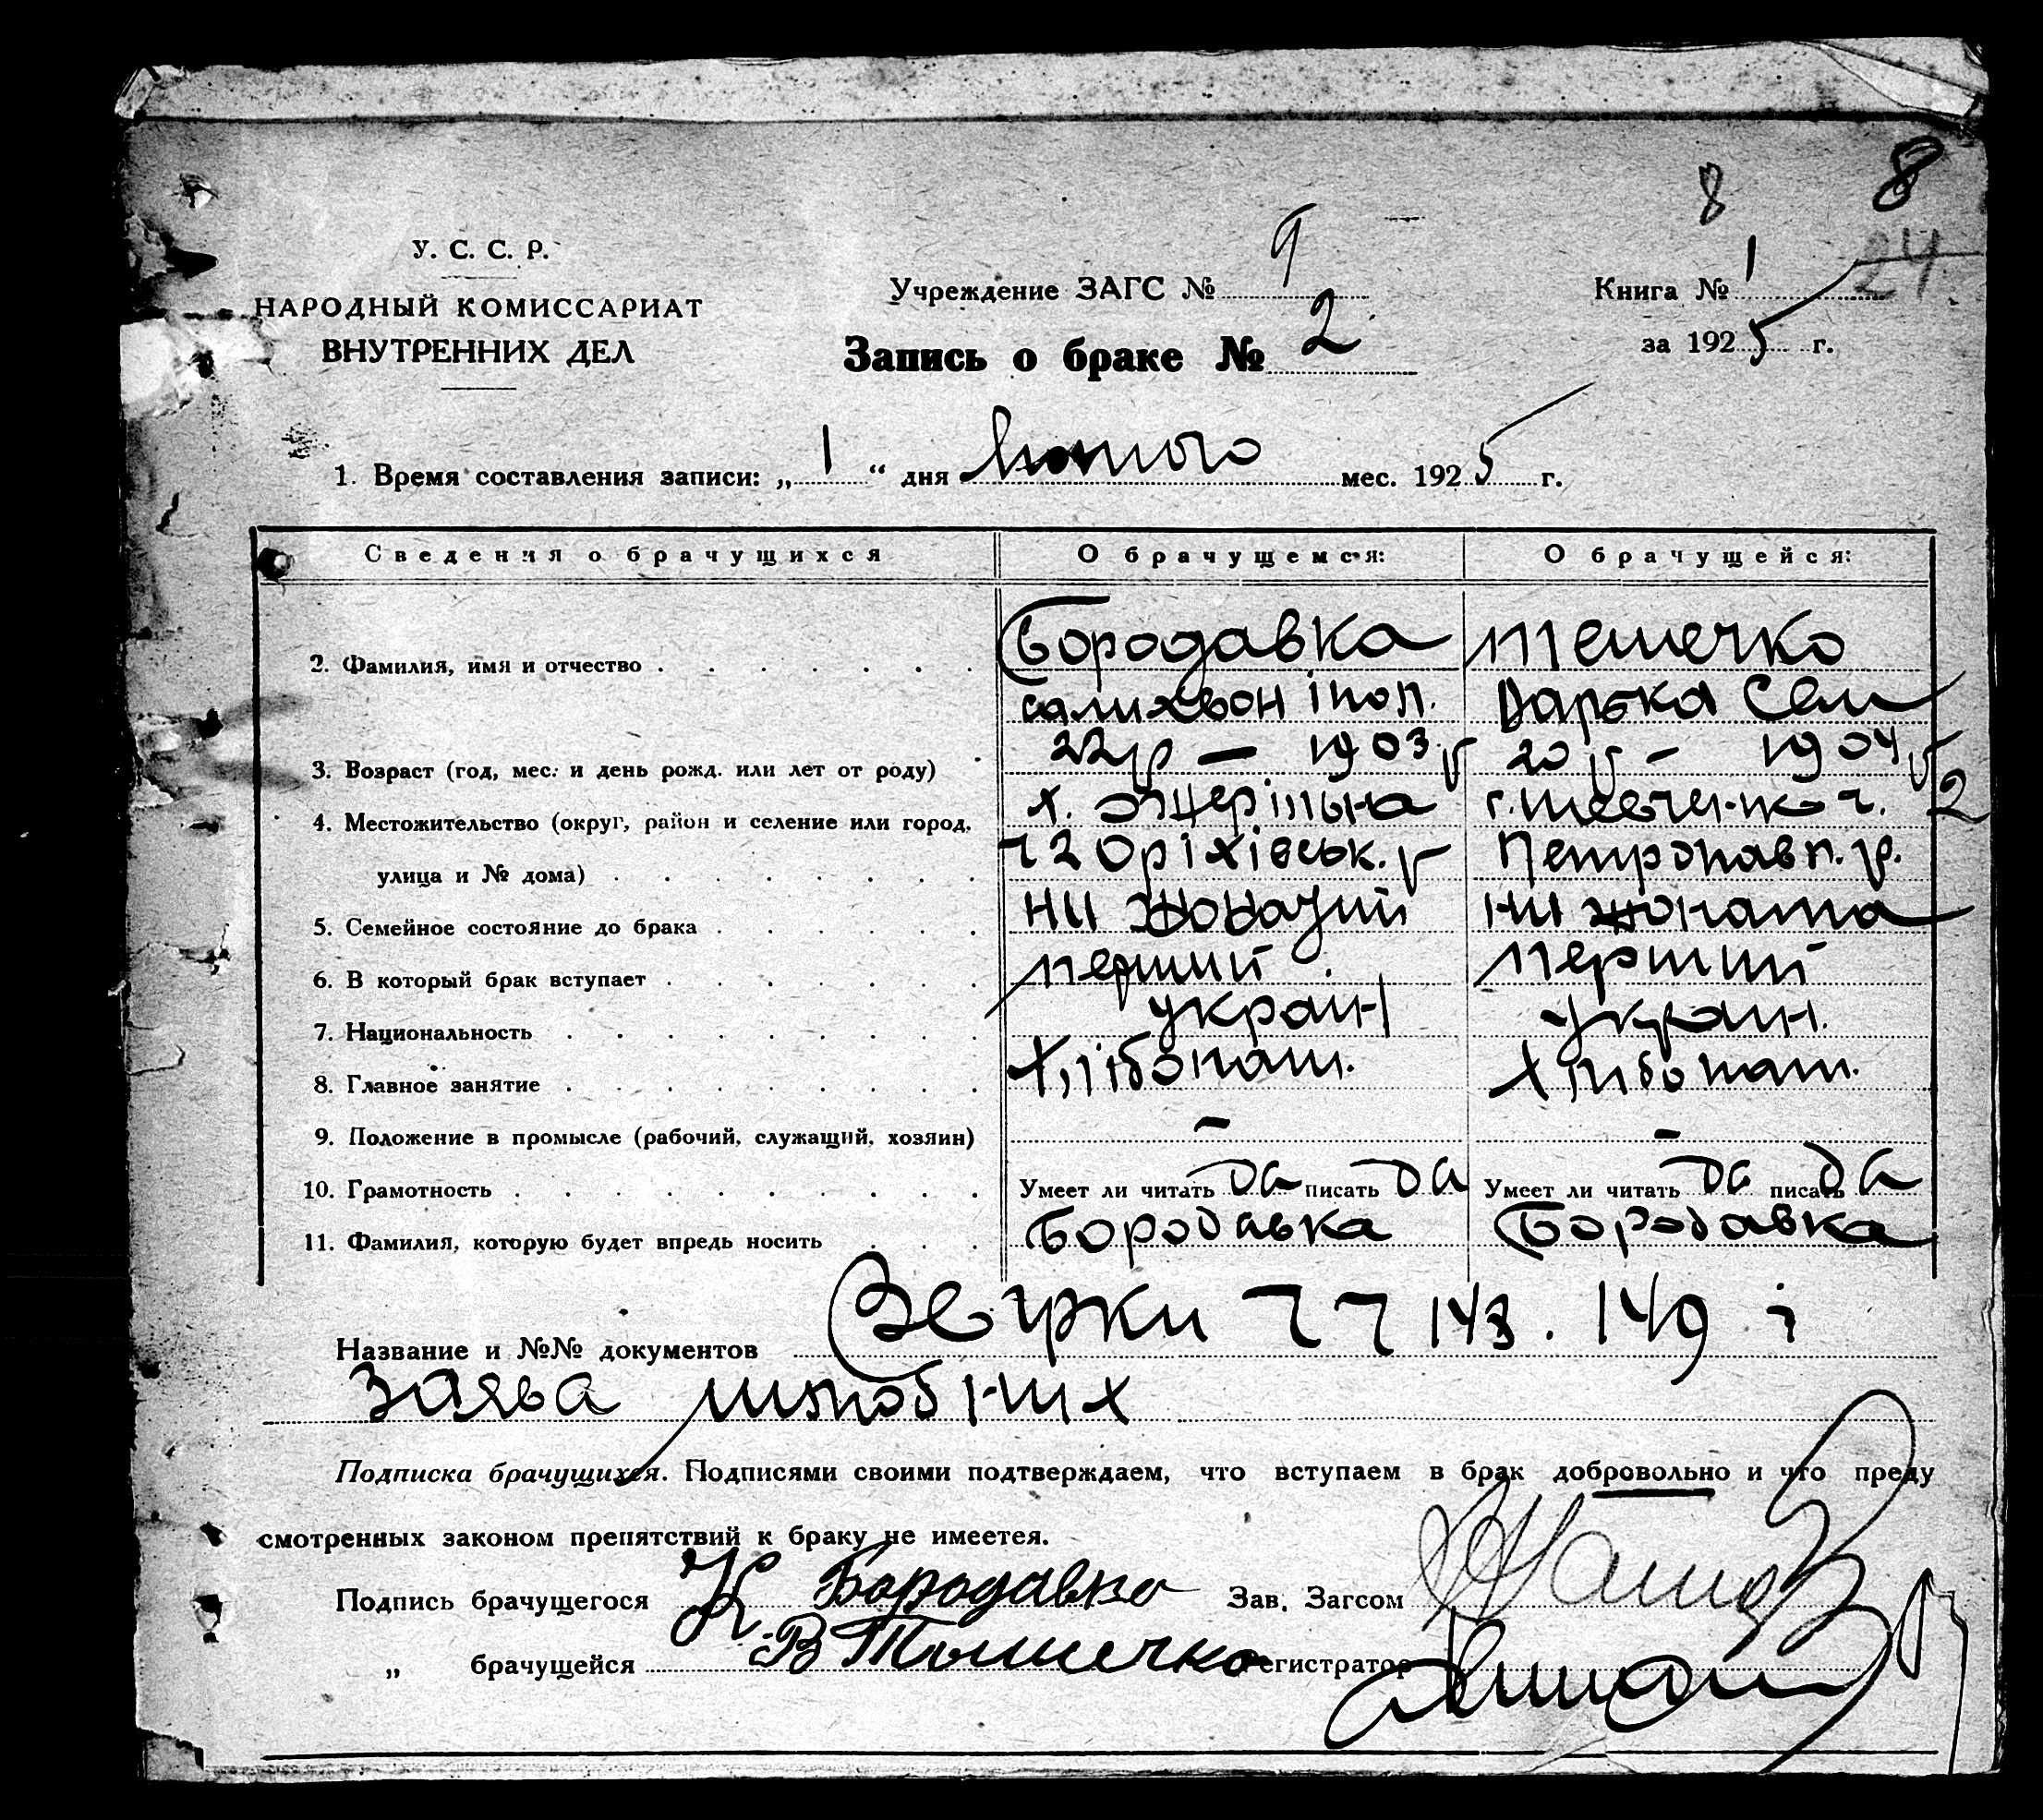 8 8
24
У. С. С. Р.
НАРОДНЫЙ КОМИССАРИАТ
ВНУТРЕННИХ ДЕЛ
Учреждение ЗАГС № 9
Запись о браке № 2
Книга № 1
за 1925 г.
1. Время составления записи: „ 1 “ дня лютого мес. 1925 г.
Сведения о брачущихся О брачущемся: О брачущейся:
2. Фамилия, имя и отчество Бородавка Тешечко
іпол. Дарька Сем
3. Возраст (год, мес. и день рожд. или лет от роду) 22 р — 1903 р 20 р - 1904 р
4. Местожительство (округ, район и селение или город, х. 2
улица и № дома) Оріхівськ. р Петропавл. р.
5. Семейное состояние до брака ни жонатий ни жоната
6. В который брак вступает перший перший
7. Национальность украін украин.
8. Главное занятие Хлібопаш. Хлибопаш.
9. Положение в промысле (рабочий, служащий, хозяин) - -
10. Грамотность Умеет ли читать да писать да Умеет ли читать да писать да
11. Фамилия, которую будет впредь носить Бородавка Бородавка
Название и №№ документов 149 і
заява шлюбних
Подписка брачущихся. Подписями своими подтверждаем, что вступаем в брак добровольно и что преду
смотренных законом препятствий к браку не имеетея.
Подпись брачущегося К Бородавка Зав. Загсом
„ брачущейся В Тышечко Регистратор